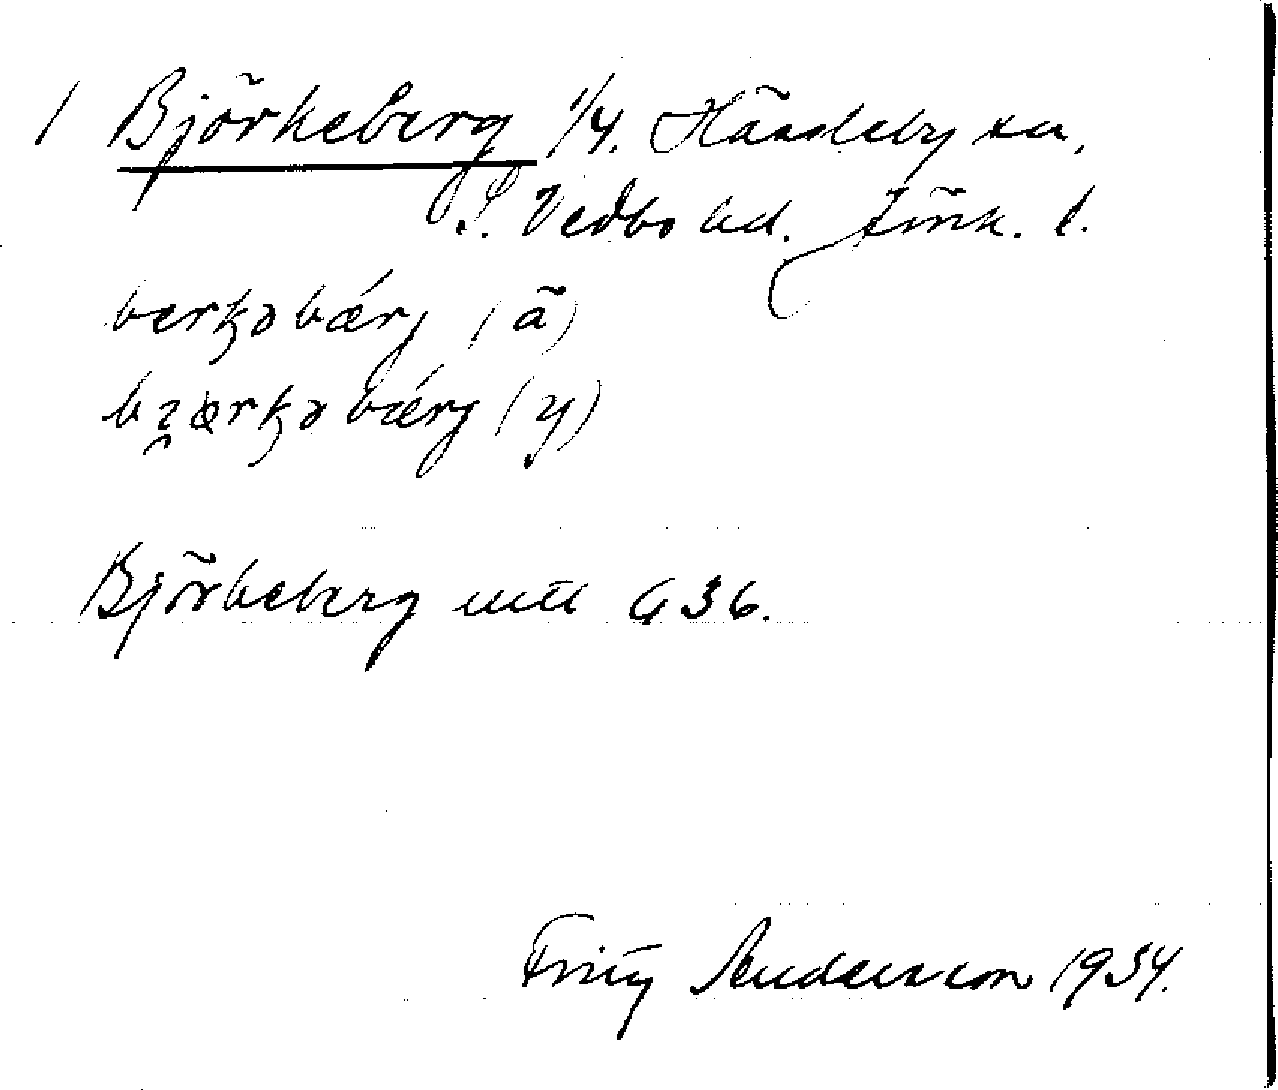 1 Björkeberg 1/4. Händeby sn,
S. Vedbo hd. Jönk. l.
bœrkəbǽrj (ä)
bi̯œrkəbǽrj (y)
Björkeberg mtl G 36.
Fritz Andersson 1934.